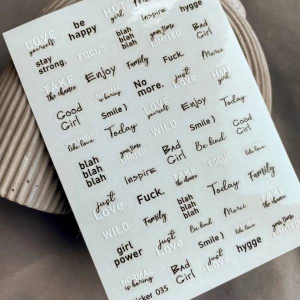 LOVE yourself
be happy
HOT girl
blah blah
Inspire
hygge
stay strong.
FOCUS
blah blah blah
your time
LIMITED
BAd Girl
TAKE the chance
Enjoy
Family
Fuck.
Merci
HOT girl
is boring
No more.
just Love
LOVE yourself
Enjoy
your time
LIMITED
Good Girl
Smile )
Today
WILD
BAd Girl
Smile )
blah blah blah
Inspire
Today
Be kind
FOCUS
just Love
Fuck.
Family
TAKE the chance
Today
TAKE the chance
WILD
Family
blah blah blah
Merci
Family
girl power
just Love
Be kind
Smile )
hygge
just Love
NORMAL is boring
BAd Girl
HOT girl
Smile )
your time
LIMITED
cker 035